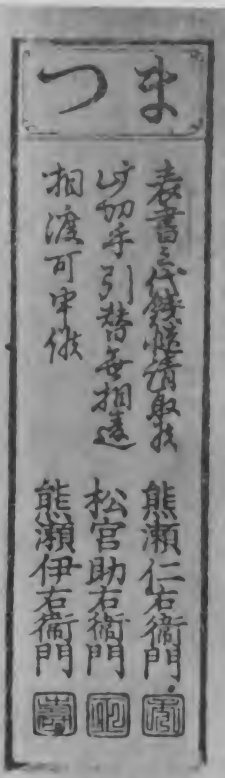 まつ
表書之代銭慥請取候
此切手引替無相違
相渡可申候
熊瀬仁右衛門
松宮助右衛門
熊瀬伊右衛門